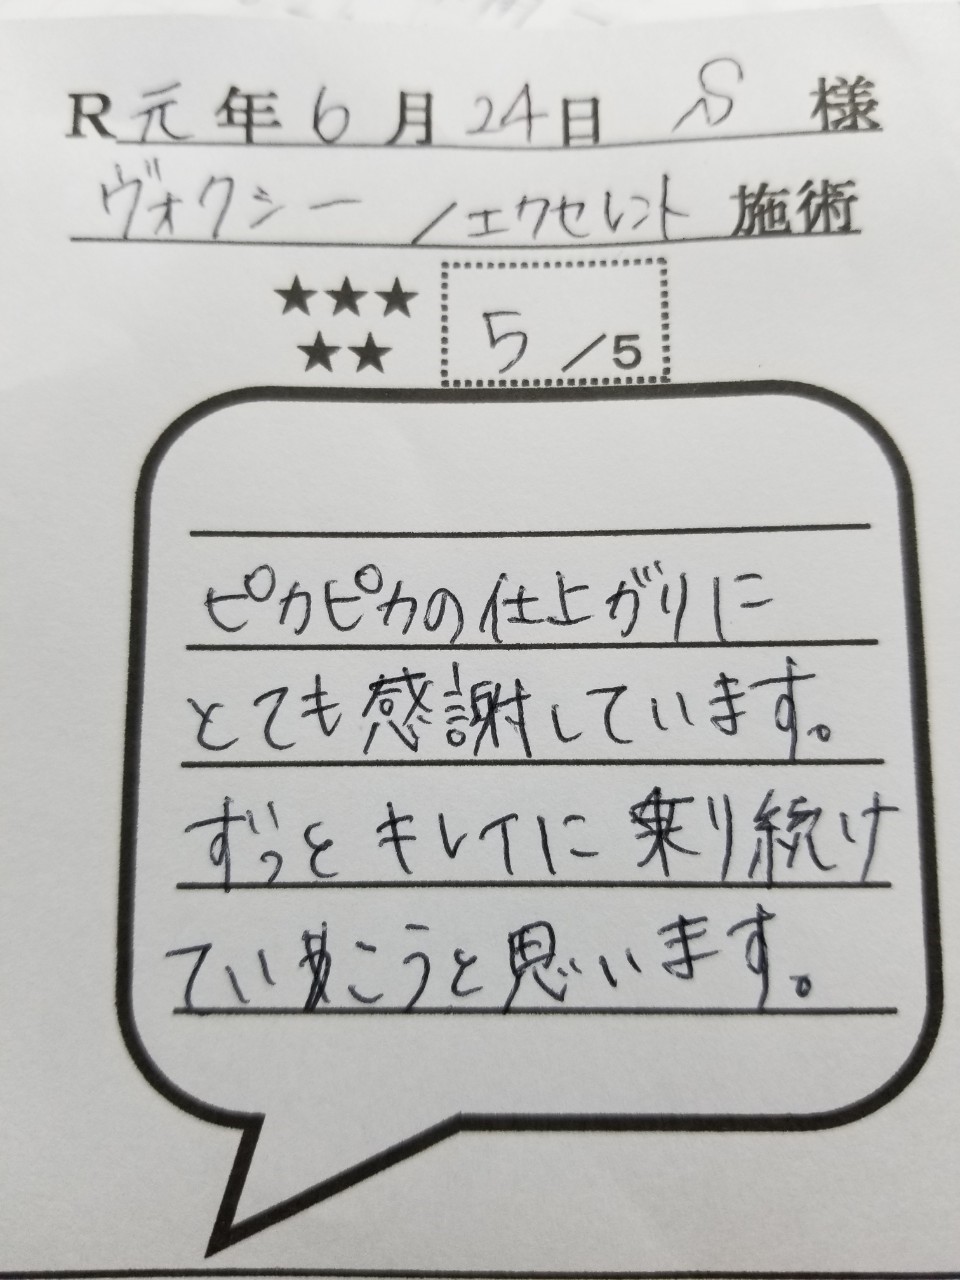 R元年6月24日 S 様
ヴォクシー /エクセレント 施術
★★★
★★
5/5
ピカピカの仕上がりに
とても感謝しています。
ずっとキレイに乗り続け
ていこうと思います。